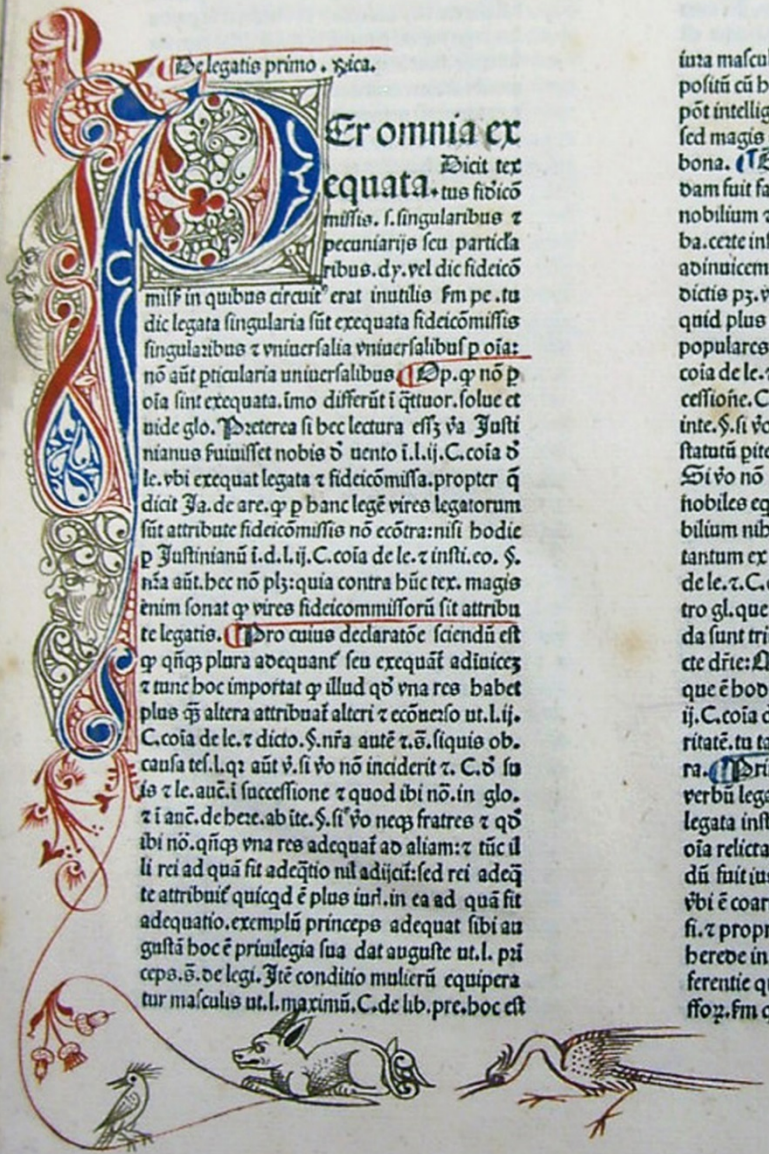 De legatis primo. Rica.
Per omnia ex
equata. Dicit tex
tus fideicō
missis. s. singularibus ⁊
pecuniarijs seu particl'a
ribus. dy. vel dic fideicō
miss̄ in quibus circuit' erat inutilis s̄m pe. tu
dic legata singularia sūt exequata fideicōmissis
singularibus ⁊ vniuersalia vniuersalibus ꝑ oīa:
nō aūt ꝑticularia uniuersalibus. Op. ꝙ nō ꝑ
oīa sint exequata. īmo differūt ī q̄ttuor. solue et
uide glo. Preterea si hec lectura eēt vā Justi
nianus fuisset nobis ď uento ī. l. ij. C. coīa ď
le. vbi exequat legata ⁊ fideicōmissa. propter q̄
dicit Ja. de are. ꝙ ꝑ hanc legē vires legatorum
sūt attribute fideicōmissis nō ecōtra: nisi hodie
ꝑ Justinianū ī. d. l. ij. C. coīa de le. ⁊ insti. eo. §.
nr̄a aūt. hec nō plꝫ: quia contra hūc tex. magis
enim sonat ꝙ vires fideicommissorū sit attribu
te legatis. Pro cuius declaratōe sciendū est
ꝙ qn̄qꝫ plura adequant̄ seu exequāt̄ adinuiceꝫ
⁊ tunc hoc importat ꝙ illud qď vna res habet
plus q̄ꝫ altera attribuat̄ alteri ⁊ ecōuerso ut. l. ij.
C. coīa de le. ⁊ dicto. §. nr̄a autē ⁊. s̄. siquis ob.
causa tes. l. qr aūt v̊. si v̊o nō inciderit ⁊. C. ď su
is ⁊ le. auc̄. ī successione ⁊ quod ibi nō. in glo.
⁊ ī auc̄. de here. ab īte. §. si v̊o neqꝫ fratres ⁊ qď
ibi nō. qn̄qꝫ vna res adequat̄ ad aliam: ⁊ tūc il
li rei ad quā fit adeq̄tio nil adijcit̄: sed rei adeq̄
te attribuit̄ quicqd ē plus iuri. in ea ad quā fit
adequatio. exemplū princeps adequat sibi au
gustā hoc ē priuilegia sua dat auguste ut. l. pri
ceps. s̄. de legi. Jtē conditio mulierū equipera
tur masculis ut. l. maximū. C. de lib. pre. hoc est
iura mascul
positū cū h
pōt intellig
sed magis
bona.
dam fuit fa
nobilium ⁊
ba. certe inf
adinuicem
dictis pꝫ. v
quid plus
populares
coīa de le. ⁊
cessiōe. C
inte. §. si v̊o
statutū ꝑite
Si v̊o nō
nobiles eq
bilium nih
tantum ex
de le. ⁊. C.
tro gl. que
da sunt tri
cte dr̄ie:
que ē hod
ij. C. coīa d
ritatē. tu ta
ra. Pri
verbū lega
legata inst
oīa relicta
dū fuit ius
vbi ē coar
fi. ⁊ propr
herede in
ferentie q
ssoꝝ. s̄m q